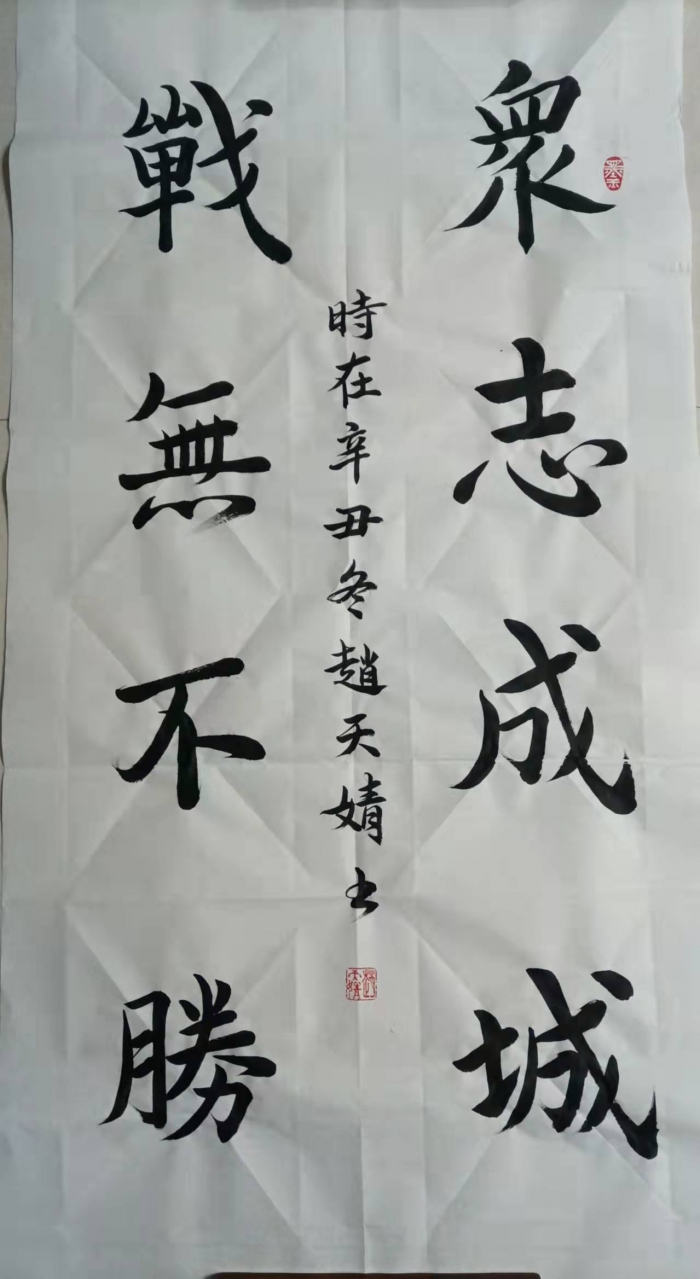 眾志成城
戰無不勝
時在辛丑冬趙天婧书